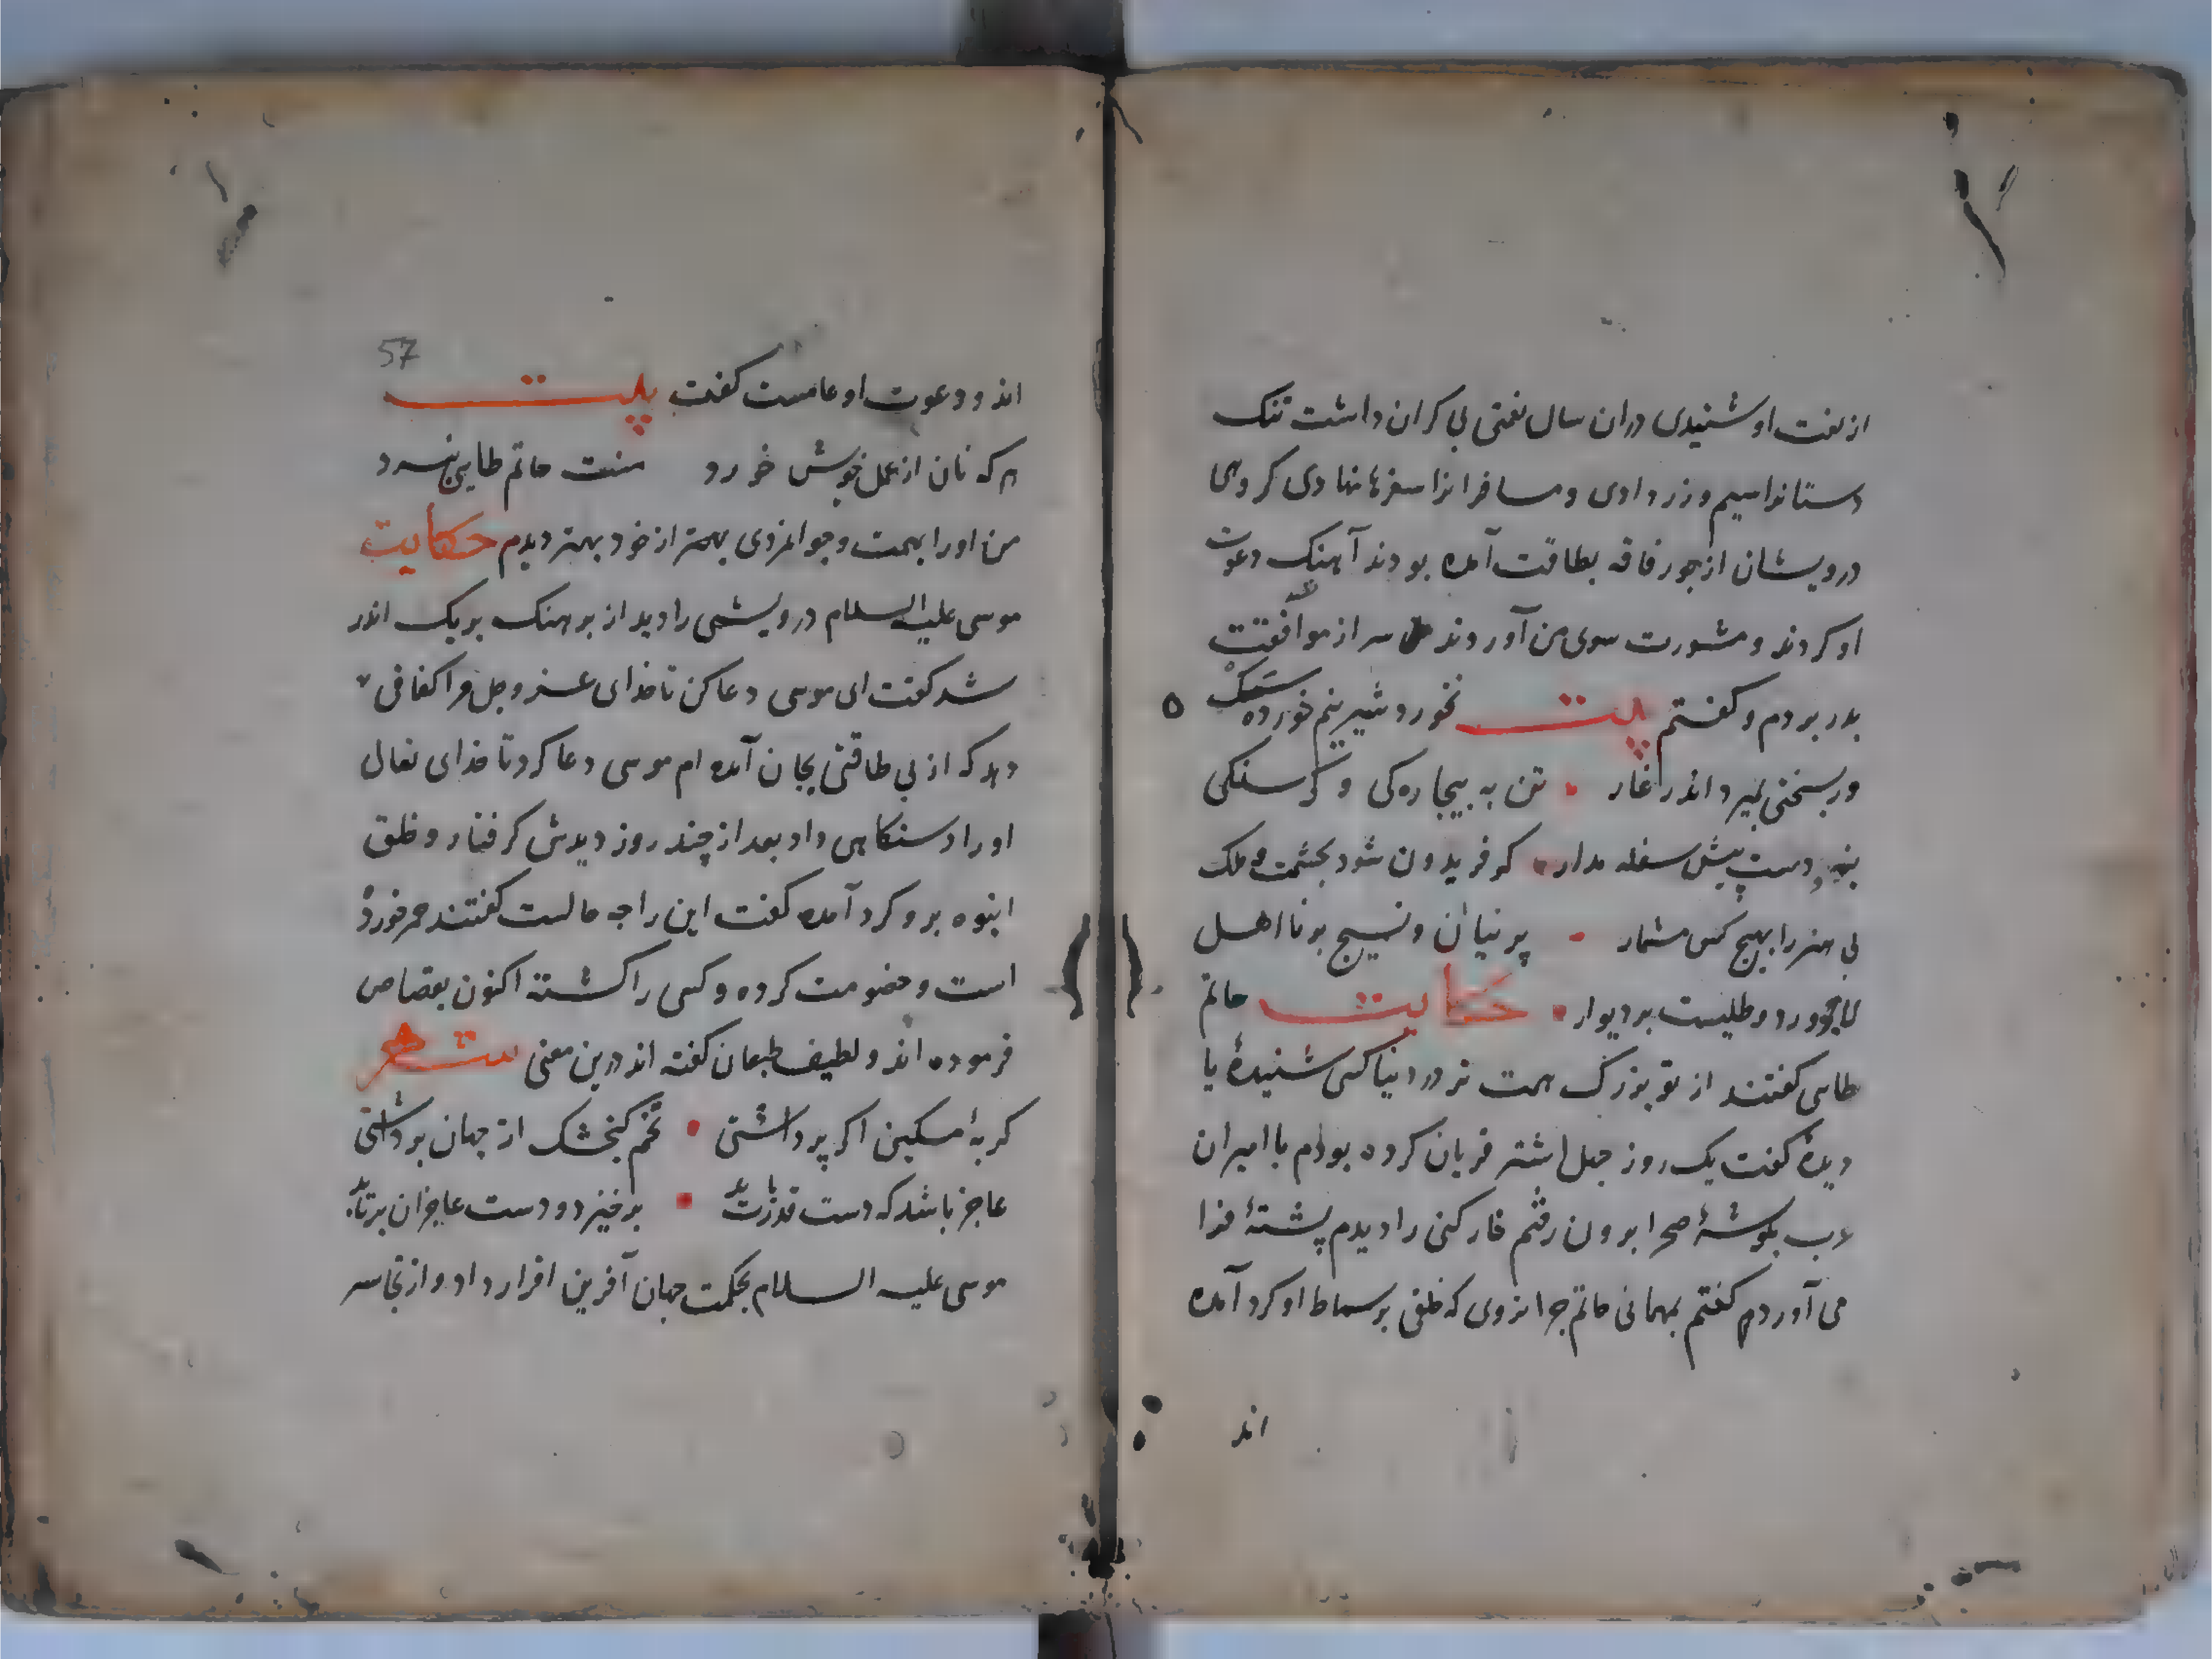 از نعت او شنیدی دران سال نعمتی بی کران داشت تنک
دستانرا سیم و زر دادی و مسافرانرا سفرها نهادی کروهی
درویشان از جور فاقه بطاقت آمده بودند آهنک دعوت
او کردند و مشورت سوی من آوردند سر از موافقت
بدر بردم و کفتم بیت نخورد شیر نیم خورده سک
ور بسختی بمیرد اندر غار تن به بیچارەکی و کرسنکی
بنه و دست پیش سفله مدار کر فریدون شود بحشمت و ملک
بی هنر را بهیچ کس مشمار پرنیان و نسیج بر نا اهل
لاجورد و طلیست بر دیوار حکایت حاتم
طایی کفتند از تو بزرک همت تر در دنیا کسی شنیدۀ یا
دیدۀ کفت یک روز چهل اشتر قربان کرده بودم با امیران
عرب بکوشۀ صحرا برون رفتم خارکنی را دیدم پشتۀ فرا
می آوردم کفتم بمهمانی حاتم چرا نروی که خلقی بر سماط او کرد آمده
اند
57
اند و دعوت او عامست کفت بیت
هر که نان از عمل خویش خورد منت حاتم طایی نبرد
من او را بهمت و جوانمردی بهتر از خود بهتر دیدم حکایت
موسی علیه السلام درویشی را دید از برهنک بریک اندر
شد کفت ای موسی دعا کن تا خدای عز و جل مرا کفافی
دهد که از بی طاقتی بجان آمده ام موسی دعا کرد تا خدای تعال
او را دستکاهی داد بعد از چند روز دیدش کرفتار و خلق
انبوه برو کرد آمده کفت این را چه حالست کفتند خمر خورده
است و خصومت کرده و کسی را کشته اکنون بقصاص
فرموده اند و لطیف طبعان کفته اند درین معنی شعر
کربۀ مسکین اکر پر داشتی تخم کنجشک از جهان برداشتی
عاجز باشد که دست قدرت یابد برخیزد و دست عاجزان برتابد
موسی علیه السلام بحکمت جهان آفرین اقرار داد و از تجاسر